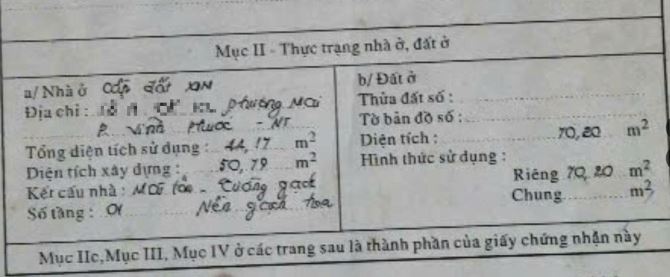 Mục II - Thực trạng nhà ở, đất ở
a/ Nhà ở Cấp đất XDN
Địa chỉ : phường Mới
P. Vĩnh Phước - NT
Tổng diện tích sử dụng : 44,17 m²
Diện tích xây dựng : 50,79 m²
Kết cấu nhà : Mái tôn - Tường gạch
Số tầng : 01 Nền gạch hoa
b/ Đất ở
Thửa đất số :
Tờ bản đồ số :
Diện tích : 70,20 m²
Hình thức sử dụng :
Riêng 70,20 m²
Chung m²
Mục IIc,Mục III, Mục IV ở các trang sau là thành phần của giấy chứng nhận này